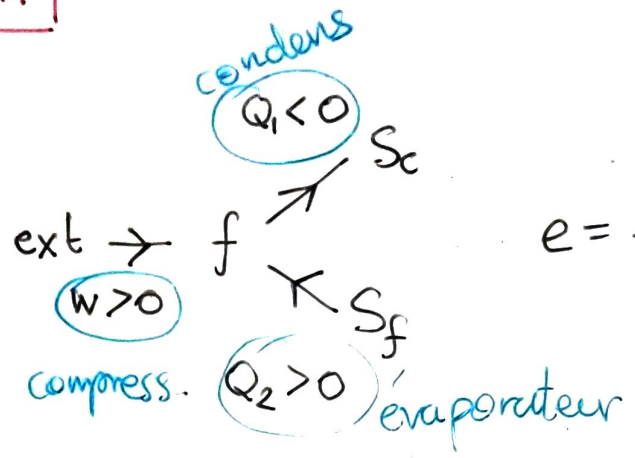 condens
Q₁ < 0
Sc
ext → f
e =
W > 0
Sf
compress.
Q₂ > 0
évaporateur